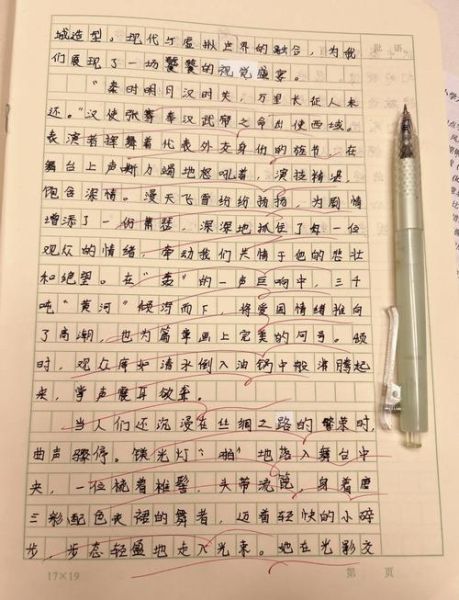 城造型。现代与虚拟世界的融合，为我
们展现了一场饕餮的视觉盛宴。
“秦时明月汉时关，万里长征人未
还。”汉使张骞奉汉武帝之命出使西域。
表演者挥舞着代表外交身份的旌节，在
舞台上声嘶力竭地怒吼着，演技精湛，
饱含深情。漫天飞雪纷纷扬扬，为剧情
增添了一份萧瑟，深深地抓住了每一位
观众的情绪，牵动我们共情于他的悲壮
和绝望。在“轰”的一声巨响中，三千
吨“黄河”倾泻而下，将爱国情绪推向
了高潮，也为篇章画上完美的问号。顿
时，观众席如清水倒入油锅中般沸腾起
来，掌声震耳欲聋。
当人们还沉浸在丝绸之路的繁荣时，
曲声骤停。镁光灯“啪”地落入舞台中
央，一位梳着椎髻，头带流苏，身着唐
三彩配色夹裙的舞者，迈着轻快的小碎
步，步态轻盈地走入光束。她在光影交
17×19
第 页
批语